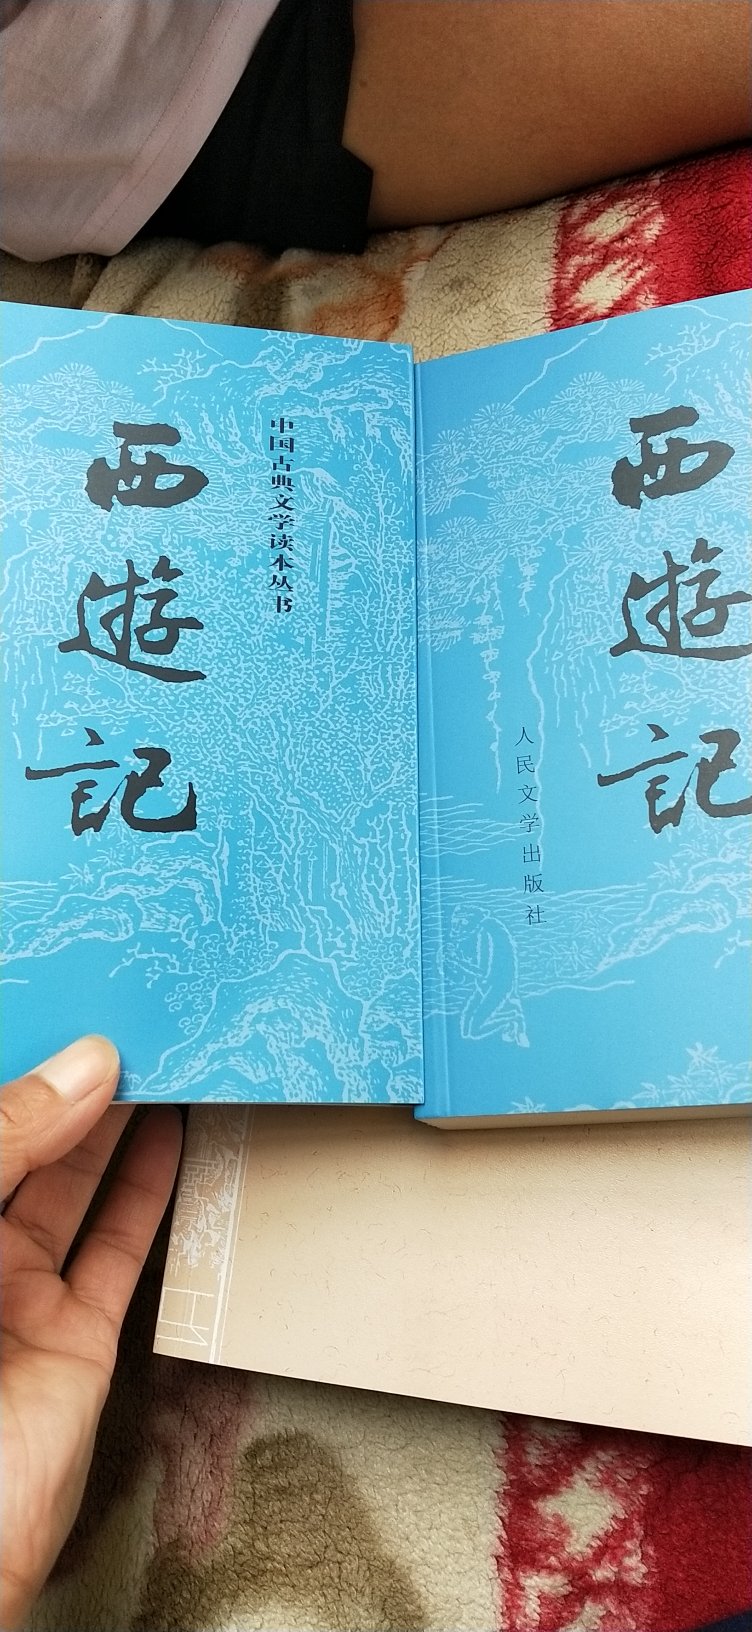 中国古典文学读本丛书
西遊記
西遊記
人民文学出版社